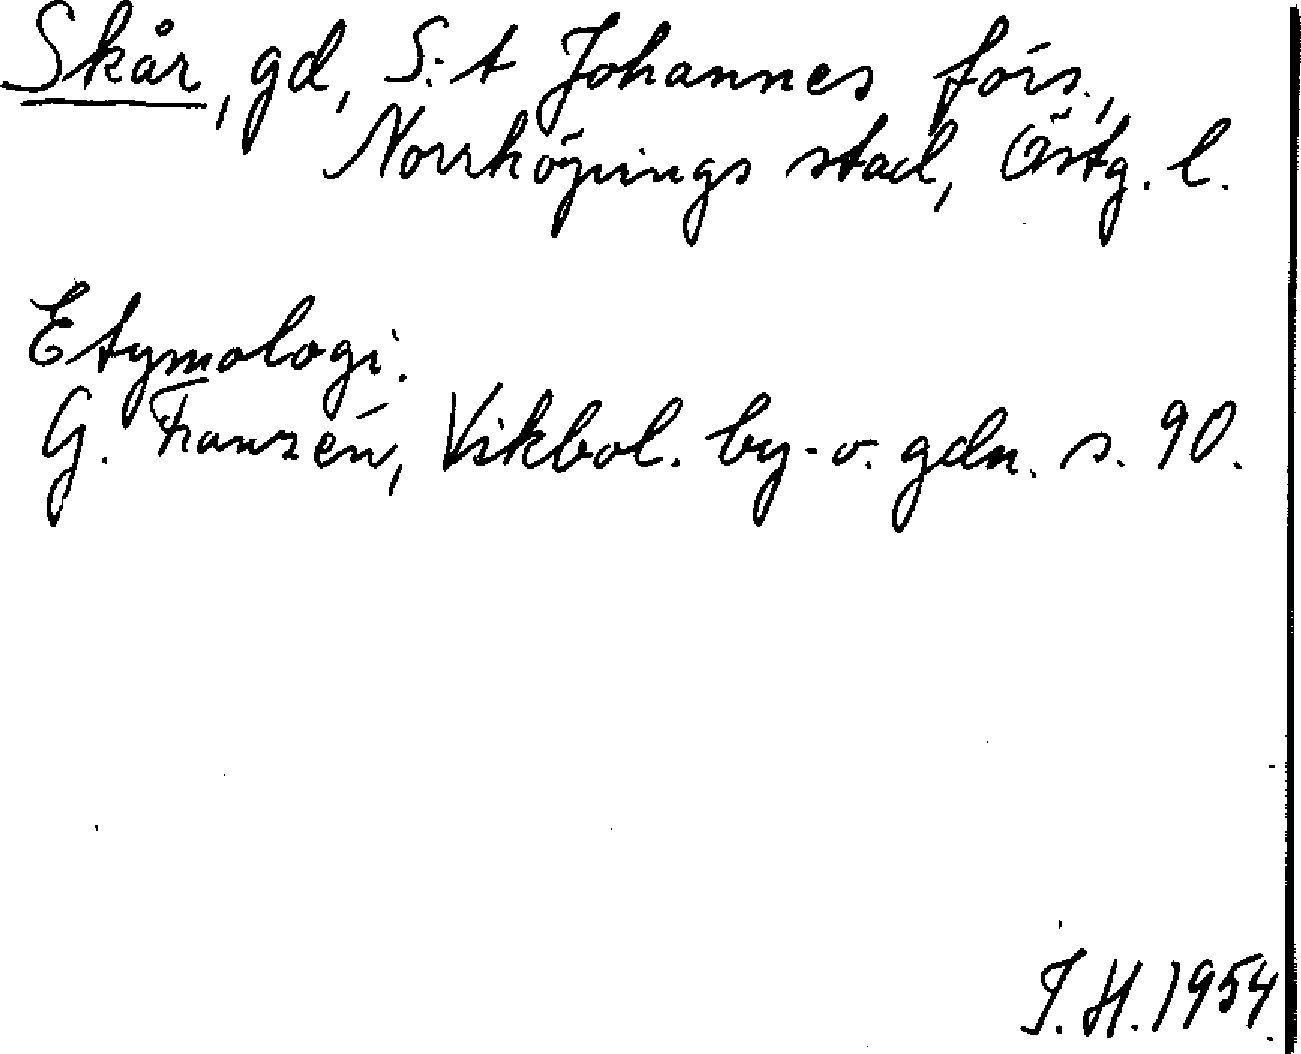 Skår, gd, S:t Johannes förs.,
Norrköpings stad, Östg. l.
Etymologi.
G. Franzén, Vikbol. by- o. gdn. s. 90.
I. H. 1954.